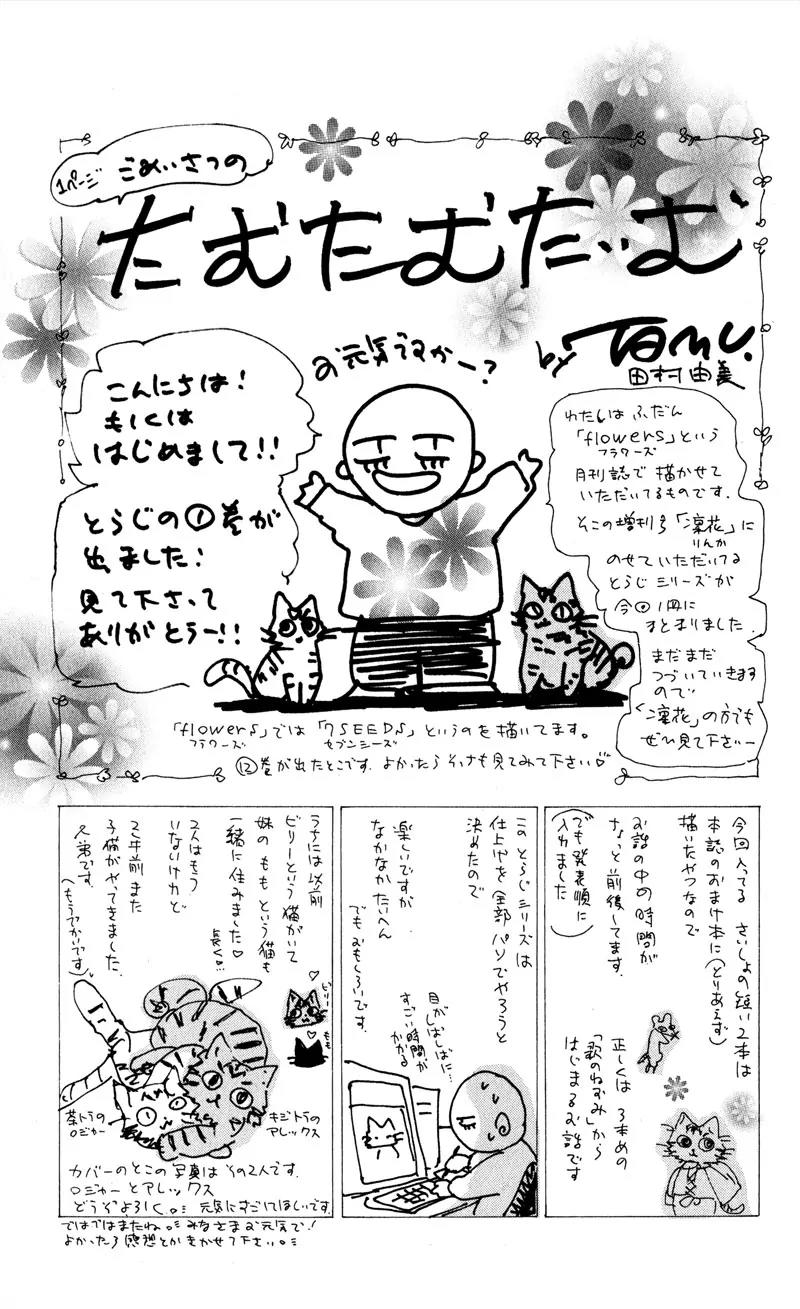 1ページ ごあいさつの
たむたむたいむ
by Tamu.
田村由美
お元気ですかー?
こんにちは!
もしくは
はじめまして!!
とらじの①巻が
出ました!
見て下さって
ありがとうー!!
わたしは ふだん
「flowers」という
フラワーズ
月刊誌で 描かせて
いただいてるものです.
そこの増刊号「凛花」に
りんか
のせていただいてる
とらじ シリーズが
今回 1冊に
まとまりました.
まだまだ
つづいていきます
ので
「凛花」の方でも
ぜひ見て下さいー
「flowers」では「7SEEDS」というのを描いてます。
フラワーズ セブンシーズ
⑫巻が出たとこです. よかったら そっちも見てみて下さい♡
今回入ってる さいしょの短い2本は
本誌のおまけ本に(とりあえず)
描いたやつなので
お話の中の時間が
ちょっと前後してます.
(でも発表順に
入れました)
正しくは 3本めの
「歌のねずみ」から
はじまるお話です
この とらじシリーズは
仕上げを 全部 パソでやろうと
決めたので
楽しいですが
なかなか たいへん
でも おもしろいです.
目がしばしばに…
すごい時間が
かかる
うちには 以前
ビリーという 猫がいて
妹の ももという 猫も
一緒に住みました♡
長く…
2人はもう
いないけれど
2年前また
子猫がやってきました.
兄弟です.
(もうでかいです)
♡
ビリー
♡
もも
茶トラの
ロジャー
キジトラの
アレックス
カバーのとこの 写真は その2人です.
ロジャーとアレックス
どうぞよろしく。 元気にすごしてほしいです.
ではではまたね。 みなさま お元気で!
よかったら 感想とか きかせて下さい。